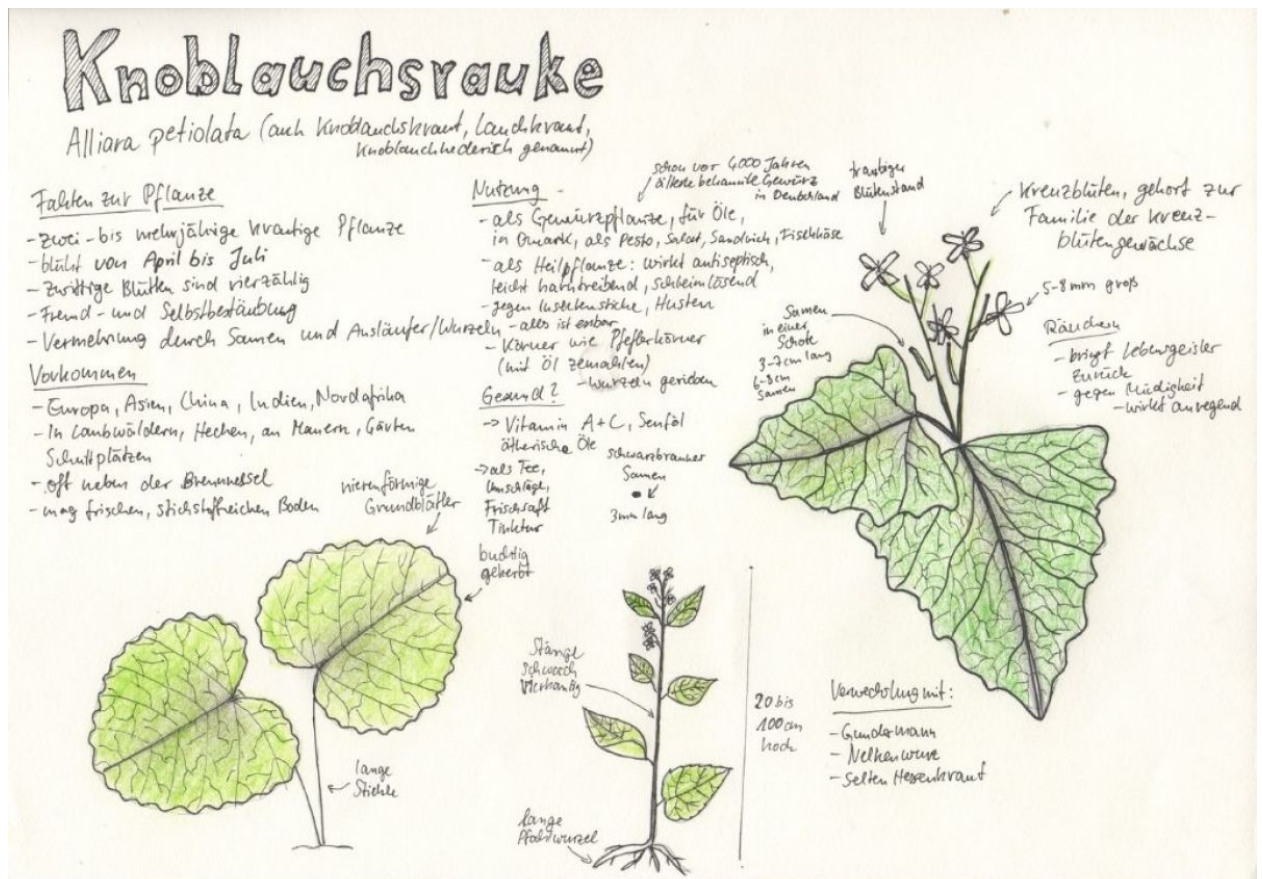 Knoblauchsrauke
Alliara petiolata (auch Knoblauchskraut, Lauchkraut,
Knoblauchhederich genannt)
Fakten zur Pflanze
- zwei- bis mehrjährige krautige Pflanze
- blüht von April bis Juli
- zwittrige Blüten sind vierzählig
- Fremd- und Selbstbestäubung
- Vermehrung durch Samen und Ausläufer/Wurzeln
Vorkommen
- Europa, Asien, China, Indien, Nordafrika
- In Laubwäldern, Hecken, an Mauern, Gärten
Schuttplätzen
- oft neben der Brennnessel
- mag frischen, stickstoffreichen Boden
Nutzung -
schon vor 4000 Jahren
älteste bekannte Gewürz
in Deutschland
- als Gewürzpflanze, für Öle,
in Quark, als Pesto, Salat, Sandwich, Frischkäse
- als Heilpflanze: wirkt antiseptisch,
leicht harntreibend, schleimlösend
- gegen Insektenstiche, Husten
- alles ist essbar
- Körner wie Pfefferkörner
(mit Öl zemahlen)
- Wurzeln gerieben
Gesund?
-> Vitamin A+C, Senföl
ätherische Öle
-> als Tee,
Umschläge,
Frischsaft
Tinktur
schwarzbrauner
Samen
3mm lang
traubiger
Blütenstand
Kreuzblüten, gehört zur
Familie der Kreuz-
blütengewächse
5-8mm groß
Samen
in einer
Schote
3-7cm lang
6-8cm
Samen
Räuchern
- bringt Lebensgeister
zurück
- gegen Müdigkeit
- wirkt anregend
nierenförmige
Grundblätter
buchtig
gekerbt
lange
Stiehle
Stängel
schwach
vierkantig
lange
Pfahlwurzel
20 bis
100cm
hoch
Verwechslung mit:
- Gundermann
- Nelkenwurz
- selten Hexenkraut